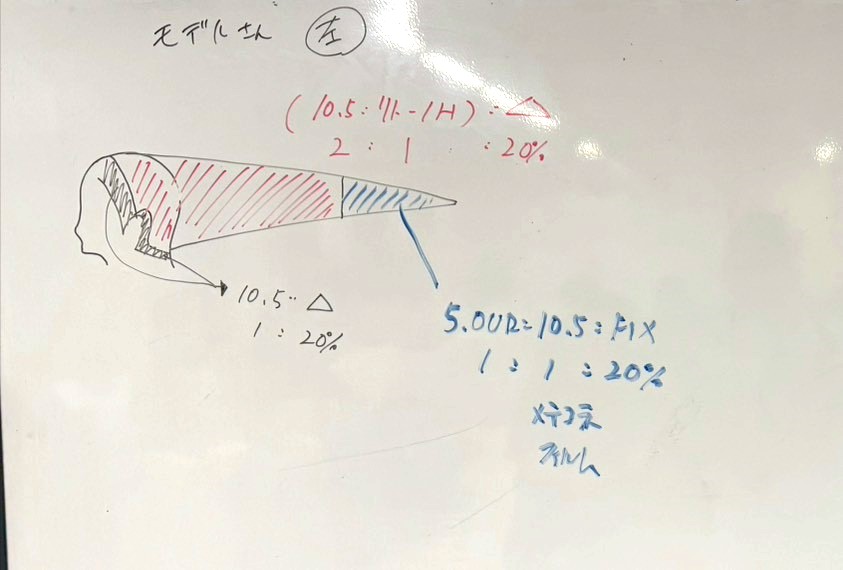 モデルさん 左
(10.5:リト-1H):△
2 : 1 : 20%
10.5:△
1 : 20%
5.0UR:10.5:FIX
1 : 1 : 20%
フィルム